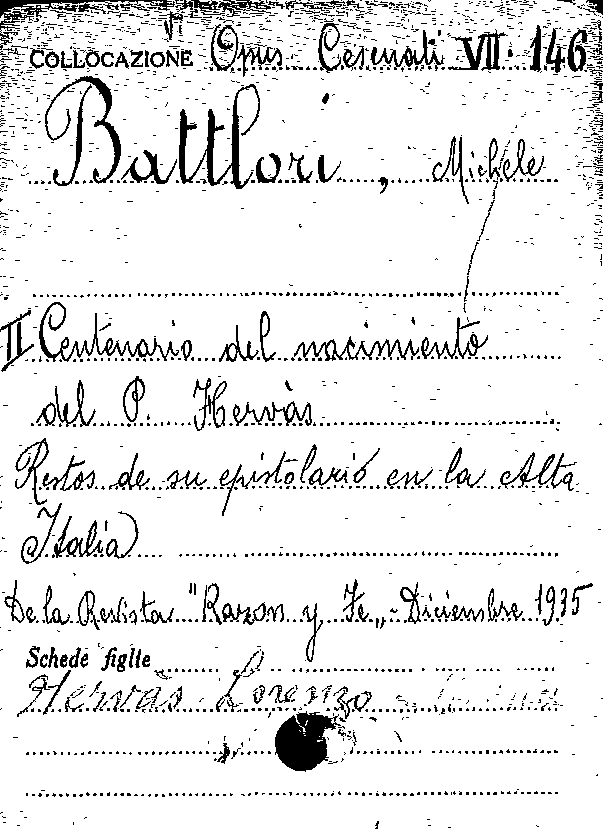 COLLOCAZIONE Opus. Cesenati VII. 146
Battlori, Michele
II Centenario del nacimiento
del P. Hervàs
Restos de su epistolario en la Alta
Italia
De la Revista "Razon y Fe„ - Diciembre 1935
Schede figlie
Hervàs Lorenzo